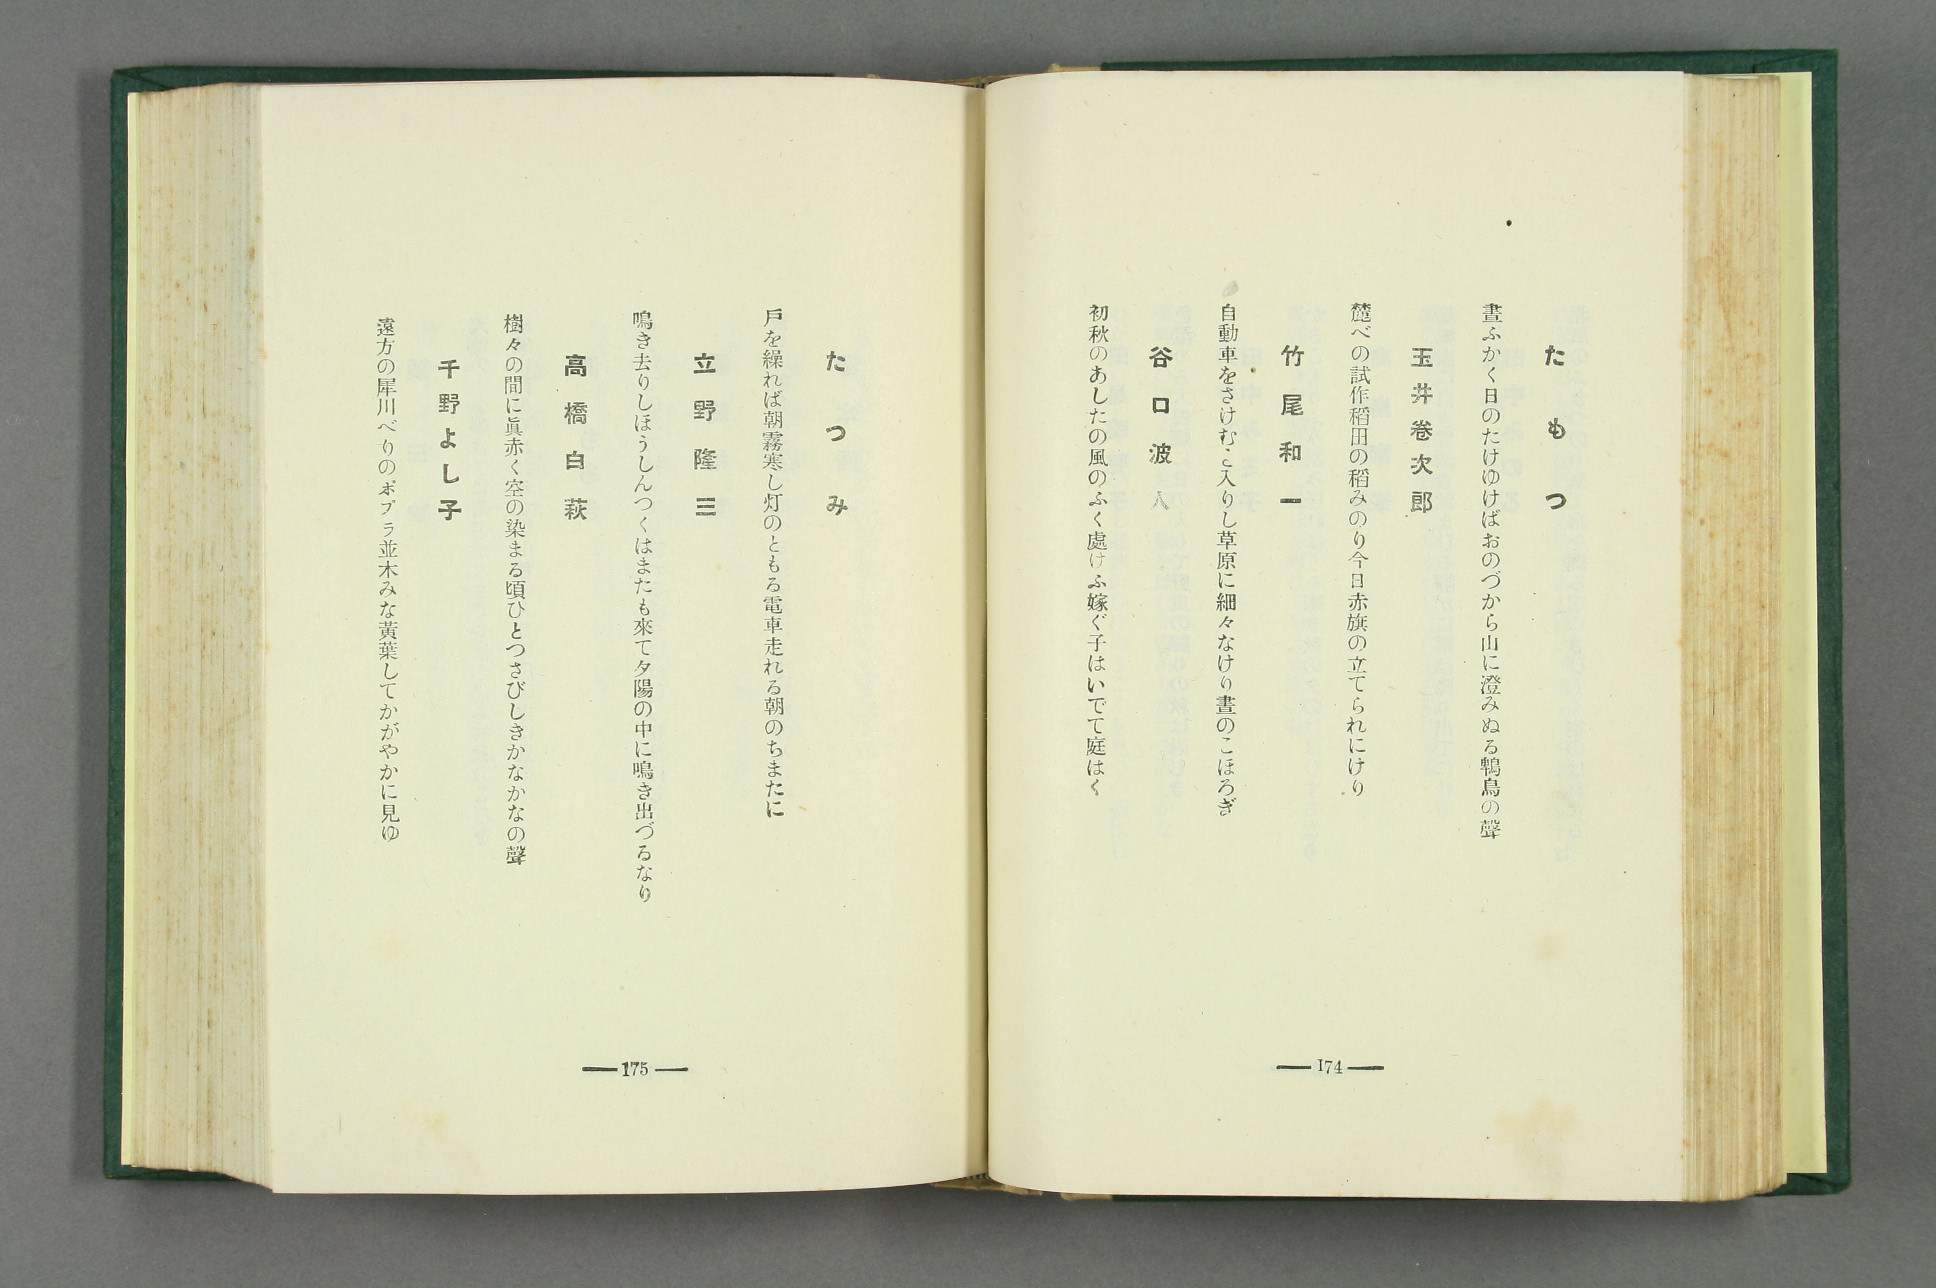 たもつ
晝ふかく日のたけゆけばおのづから山に澄みぬる鵯鳥の聲
玉井巻次郎
麓べの試作稻田の稻みのり今日赤旗の立てられにけり
竹尾和一
自動車をさけむと入りし草原に細々なけり晝のこほろぎ
谷口波人
初秋のあしたの風のふく處けふ嫁ぐ子はいでて庭はく
174
たつみ
戸を繰れば朝霧寒し灯のともる電車走れる朝のちまたに
立野隆三
鳴き去りしほうしんつくはまたも來て夕陽の中に鳴き出づるなり
高橋白萩
樹々の間に眞赤く空の染まる頃ひとつさびしきかなかなの聲
千野よし子
遠方の犀川べりのポプラ並木みな黃葉してかがやかに見ゆ
175